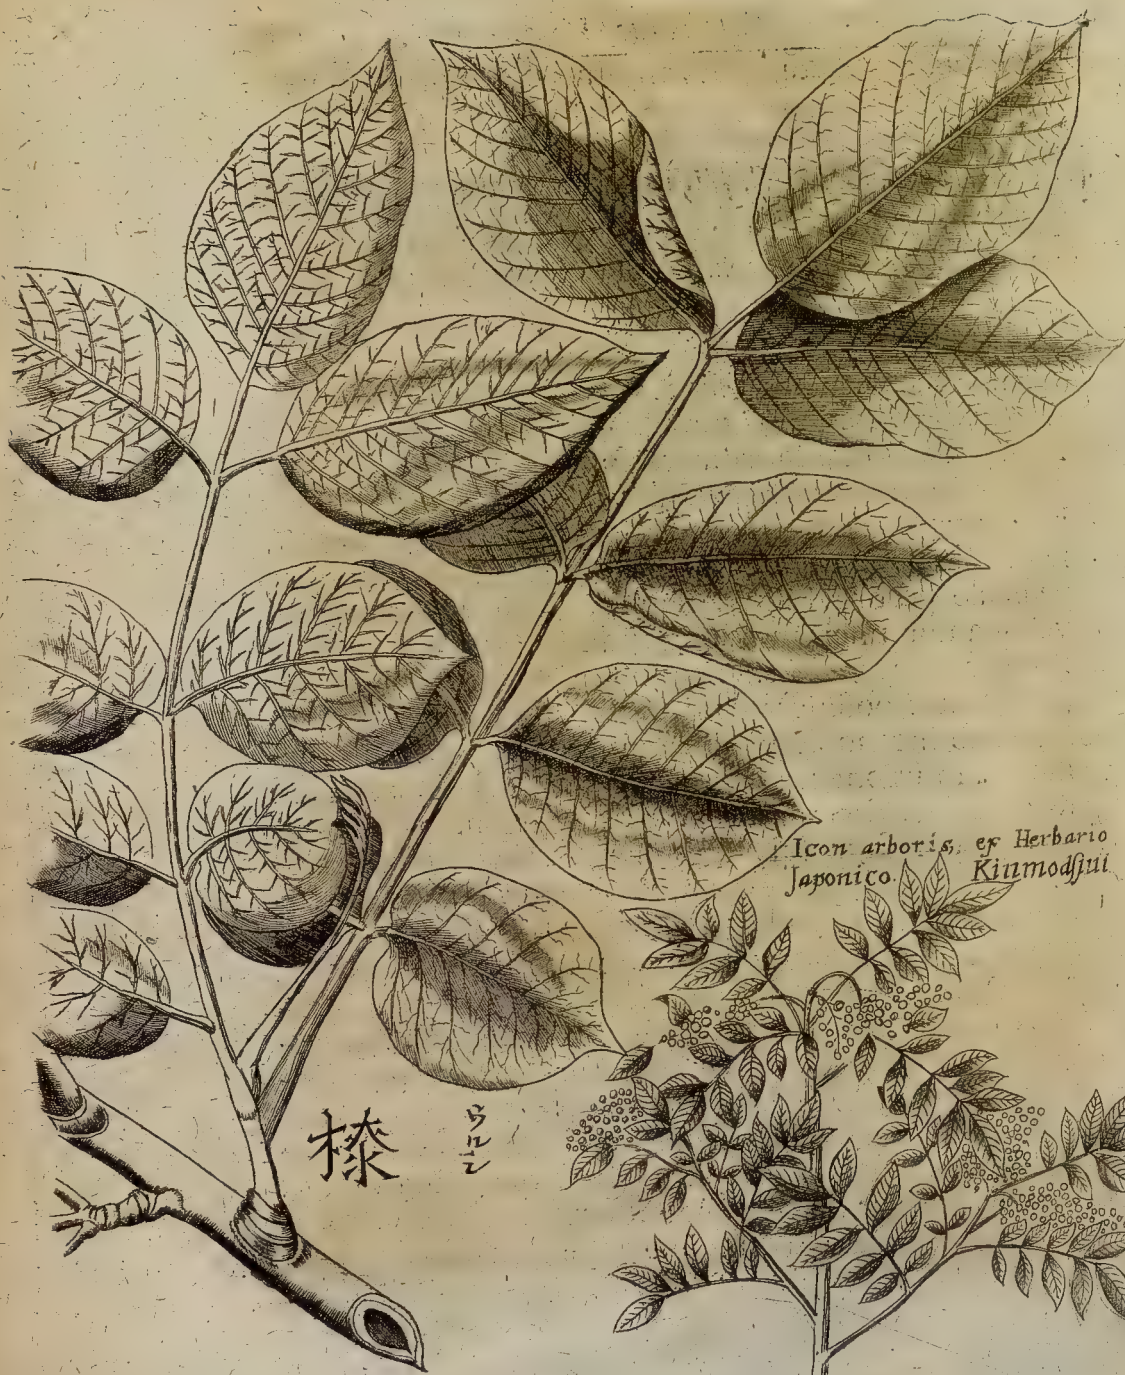 Icon arboris, ex Herbario
Japonico. Kinmodſjui
㯃
ウルシ